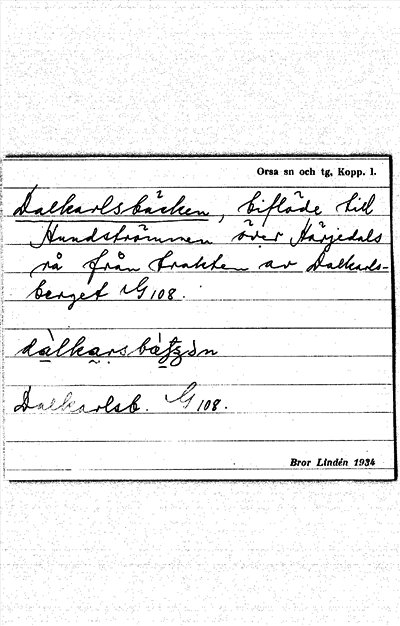 Orsa sn och tg, Kopp. l.
Dalkarlsbäcken, biflöde till
Hundströmmen över Härjedals
rå från trakten av Dalkarls-
berget G 108.
Dalkarlsb. G 108.
Bror Lindén 1934